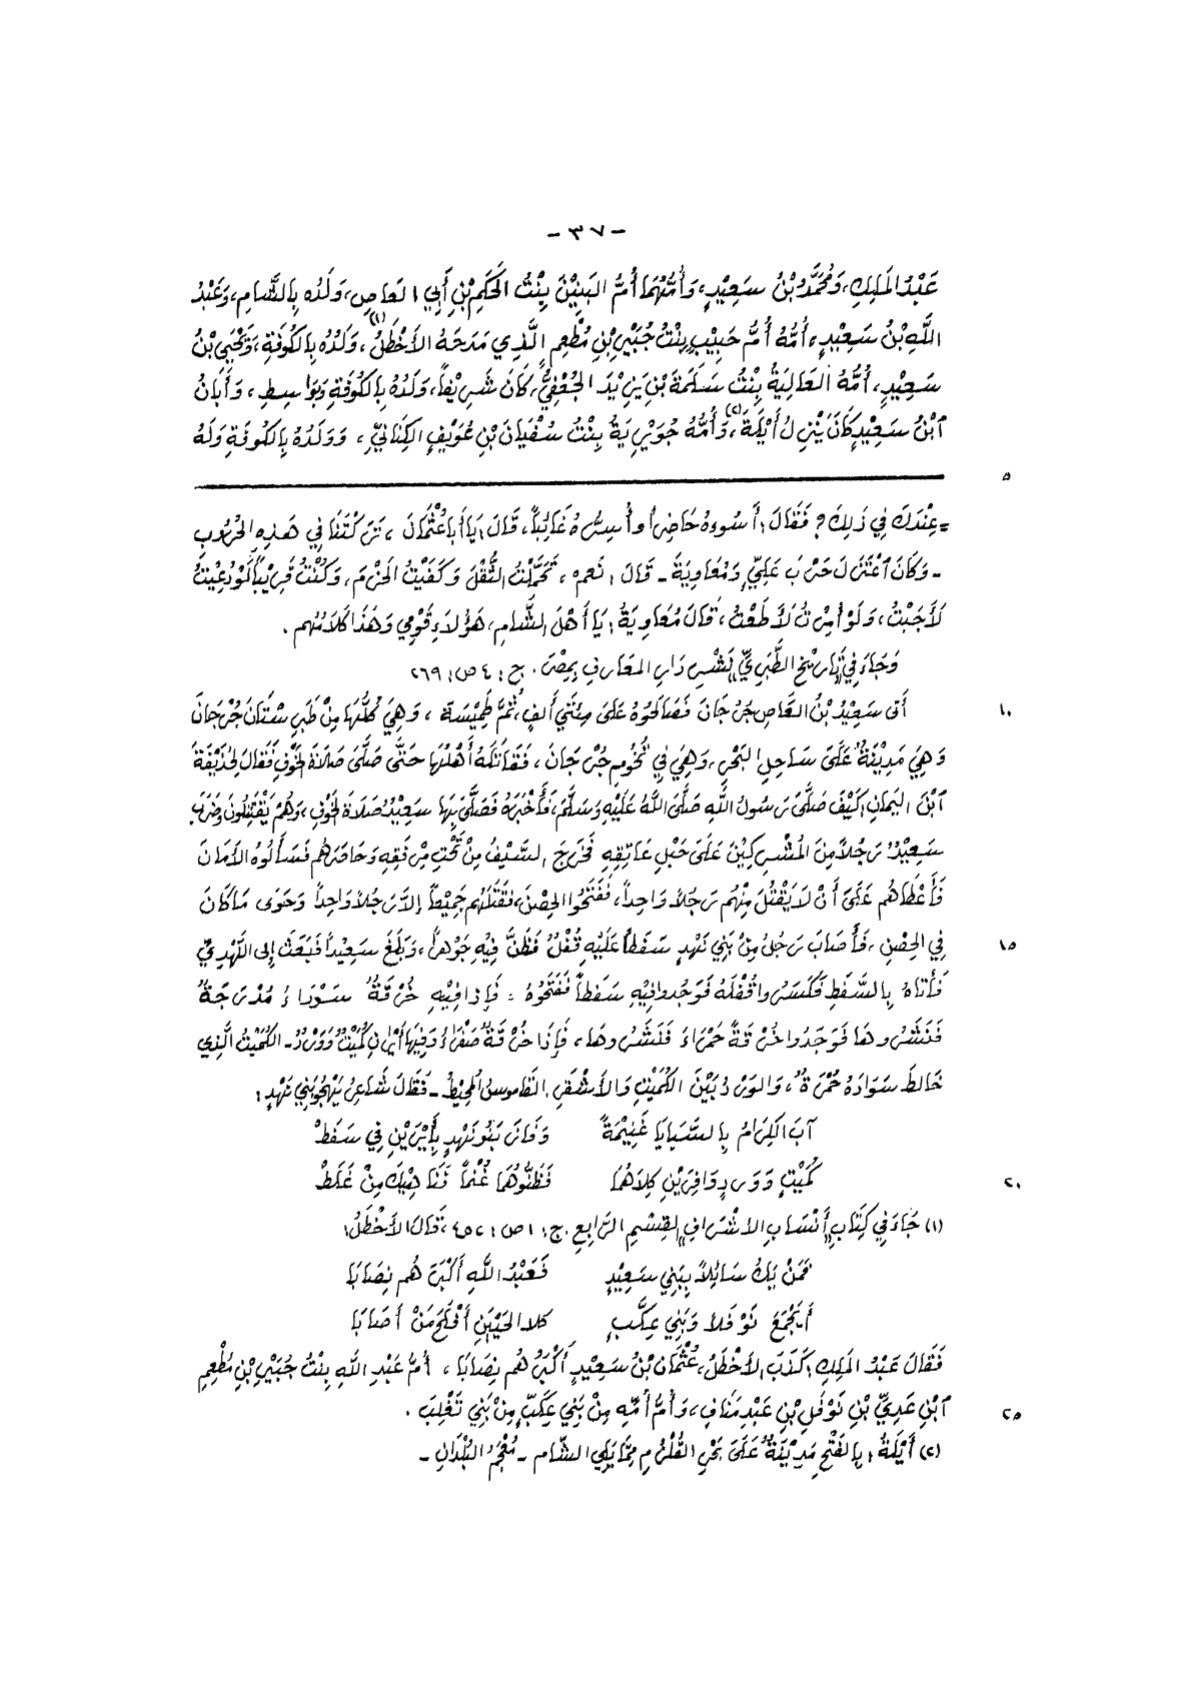 - ٣٧ -
عَبْدُ المَلِكِ، وَمُحَمَّدُ بْنُ سَعِيْدٍ، وَأُمُّهُمَا أُمُّ البَنِيْنَ بِنْتُ الحَكَمِ بْنِ أَبِي العَاصِ، وَلَدُه بِالشَّامِ، وَعَبْدُ
اللَّهِ بْنُ سَعِيْدٍ، أُمُّهُ أُمُّ حَبِيْبٍ بِنْتُ جُبَيْرِ بْنِ مُطْعِمٍ الَّذِي مَدَحَهُ الأَخْطَلُ (١)، وَلَدُهُ بِالكُوفَةِ، وَيَحْيَىَ بْنُ
سَعِيْدٍ، أُمُّهُ العَالِيَةُ بِنْتُ سَلَمَةَ بْنِ يَزِيْدَ الجُعْفِيِّ، كَانَ شَرِيْفاً، وَلَدُهُ بِالكُوفَةِ وَبَوَاسِطِ، وَأَبَانُ
ٱبْنُ سَعِيْدٍ كَانَ يَنْزِلُ أَيْلَةَ (٢)، وَأُمُّهُ جُوَيْرِيَةُ بِنْتُ سُفْيَانَ بْنِ عُوَيْفٍ الكِنَانِيِّ، وَوَلَدُهُ بِالكُوفَةِ وَلَهُ
٥
= عِنْدَكَ فِي ذَلِكَ؟ فَقَالَ: أَسُوءهُ حَاضِراً وأَسِرُّه غَائِباً، قَالَ: يَا أَبَا عُثْمَانَ، تَرَكْتَنَا فِي هَذِهِ الحُرُوبِ
- وَكَانَ ٱعْتَزَلَ حَرْبَ عَلِيٍّ وَمُعَاوِيَةَ - قَالَ: نَعَم، تَحَمَّلْتُ الثِّقْلَ وَكَفَيْتُ الحَزْمَ، وَكُنْتُ قَرِيْباً لَوْ دُعِيْتُ
لَأَجَبْتُ، وَلَوْ أُمِرْتُ لَأَطَعْتُ، قَالَ مُعَاوِيَةُ: يَا أَهْلَ الشَّامِ، هَؤُلاَءِ قَوْمِي وَهَذَا كَلاَمُهُم.
وَجَاءَ فِي تَارِيْخِ الطَّبَرِيِّ، نَشْرِ دَارِ المَعَارفِ بِمِصْرَ. ج: ٤ ص: ٢٦٩
١٠ أَتَى سَعِيْدُ بْنُ العَاصِ جُرْجَانَ فَصَالَحُوهُ عَلَى مِئَتَي أَلفٍ، ثُمَّ طَمِيْسَةَ، وَهِيَ كُلُّهَا مِنْ طَبَرِسْتَانَ جُرْجَانَ
وَهِيَ مَدِيْنَةٌ عَلَىَ سَاحِلِ البَحْرِ، وَهِيَ فِي تُخُومِ جُرْجَانَ، فَقَاتَلَهُ أَهْلُهَا حَتَّى صَلَّىَ صَلاَةَ الخَوْفِ فَقَالَ لِحُذَيْفَةَ
ٱبْنِ اليَمَانِ: كَيْفَ صَلَّىَ رَسُولُ اللَّهِ صَلَّىَ اللَّهُ عَلَيْهِ وَسَلَّمَ، فَأَخْبَرَهُ فَصَلَّىَ بِهَا سَعِيْدُ صَلاَةَ الخَوْفِ، وَهُمْ يَقْتَتِلُونَ وَضَرَبَ
سَعِيْدُ رَجُلاً مِنَ المُشْرِكِيْنَ عَلَىَ حَبْلِ عَاتِقِهِ فَخَرَجَ السَّيْفُ مِنْ تَحْتِ مِرْفَقِهِ وَحَاصَرَهُم فَسَأَلُوهُ الأَمَانَ
فَأَعْطَاهُم عَلَىَ أَنْ لاَ يَقْتُلَ مِنْهُم رَجُلاً وَاحِداً، فَفَتَحُوا الحِصْنَ، فَقَتَلَهُم جَمِيْعاً إِلاَّ رَجُلاً وَاحِداً وَحَوَى مَا كَانَ
١٥ فِي الحِصْنِ، فَأَصَابَ رَجُلُ مِنْ بَنِي نَهْدٍ سَفَطاً عَلَيْهِ قُفْلُ فَظَنَّ فِيْهِ جَوْهَراً، وَبَلَغَ سَعِيْداً فَبَعَثَ إِلى النَّهْدِيِّ
فَأَتَاهُ بِالسَّفَطِ فَكَسَرُوا قُفْلَهُ فَوَجَدوا فِيهِ سَفَطاً فَفَتَحُوْهُ، فَإِذَا فِيْهِ خُرْقَةٌ سَوْدَاءُ مُدْرَجَةُ
فَنَشَرُوهَا فَوَجَدُوا خُرْقَةً حَمْرَاءَ فَنَشَرُوهَا، فَإِذَا خُرْقَةٌ صَفْرَاءُ وَفِيْهَا أَيْرَانِ كُمَيْتُ وَوَرْدُ - الكُمَيْتُ الَّذِي
خَالَطَ سَوَادَهُ حُمْرَةُ، وَالوَرْدُ بَيْنَ الكُمَيْتِ وَالأَشْقَرِ. القَاموسُ المُحِيْطُ - فَقَالَ شَاعِرُ يَهْجُو بَنِي نَهْدٍ:
آبَ الكِرَامُ بِالسَّبَايَا غَنِيْمَةً وَفَازَ بَنُو نَهْدٍ بِأَيْرَيْنِ فِي سَفَطْ
٢٠ كُمَيْتٍ وَوَرْدٍ وَافِرَيْنِ كِلاَهُمَا فَظَنُّوهُمَا غُنْماً فَنَاهِيْكَ مِنْ غَلَطْ
(١) جَاءَ فِي كِتَابِ «أَنْسَابِ الأشْرَافِ» القِسْمِ الرَّابِعِ. ج: ١ ص: ٤٥٢، قَالَ الأَخْطَلُ:
فَمَنْ يَكُ سَائِلاً بِبَنِي سَعِيْدٍ فَعَبْدُ اللَّهِ أَكْبَرُهُم نِصَابَا
أَيَجْمَعُ نَوْفَلاً وَبَنِي عِكَبٍّ كلا الحَيَّيْنِ أَفْلَحَ مَنْ أَصَابَا
فَقَالَ عَبْدُ المَلِكِ: كَذَبَ الأَخْطَلُ، عُثْمَان بْنُ سَعِيْدٍ أَكْبَرُهُم نِصَابَا، أُمُّ عَبْدِ اللَّهِ بِنْتُ جُبَيْرِ بْنِ مُطْعِمِ
٢٥ ٱبْنِ عَدِيِّ بْنِ نَوْفَلِ بْنِ عَبْدِ مَنَافٍ، وَأُمُّ أُمِّهِ مِنْ بَنِي عِكَبٍّ مِنْ بَنِي تَغْلِبَ.
(٢) أَيْلَةُ: بِالفَتْحِ مَدِيْنَةٌ عَلَىَ بَحْرِ القُلْزُمِ مِمَّا يَلِي الشَّام - مُعْجَمُ البُلْدَانِ -